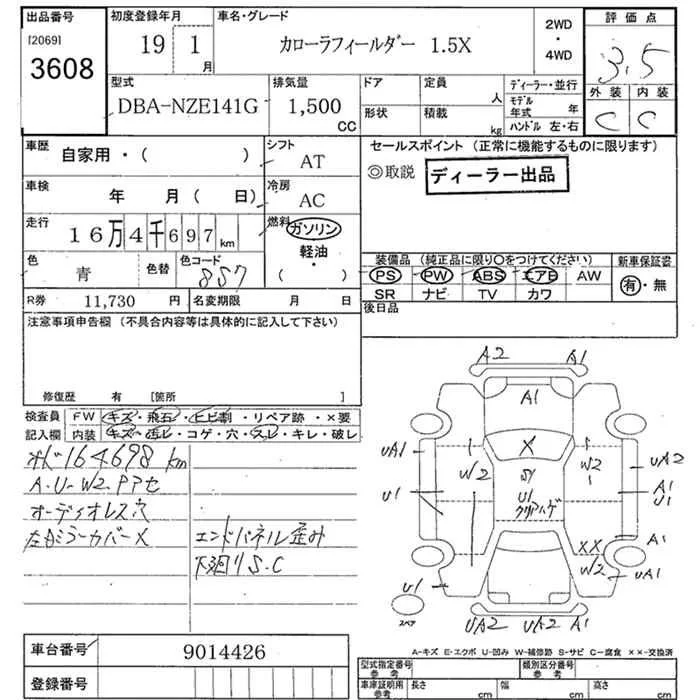 出品番号
[2069]
3608
初度登録年月
19 1
月
車名・グレード
カローラフィールダー 1.5X
2WD
・
4WD
評価点
3.5
外装 内装
C C
型式
DBA-NZE141G
排気量
1,500
CC
ドア
形状
定員
人
積載
kg
ディーラー・並行
モデル
年式 年
ハンドル 左・右
車歴
自家用・( )
シフト
AT
車検
年 月( 日)
冷房
AC
走行
16万4千697km
燃料
ガソリン
・
軽油
・
( )
色
青
色替
色コード
857
R券 11,730 円
名変期限 月 日
セールスポイント (正常に機能するものに限ります)
◎取説 ディーラー出品
装備品 (純正品に限り○をつけてください)
PS PW ABS エアB AW
SR ナビ TV カワ
新車保証書
有・無
後日品
注意事項申告欄 (不具合内容等は具体的に記入して下さい)
修復歴 有 [箇所 ]
検査員
記入欄
FW キズ・飛石・ヒビ割・リペア跡・×要
内装 キズ・汚レ・コゲ・穴・スレ・キレ・破レ
メ 164698 km
A・U・W2 PPセ
オーディオレス穴
左右ミラーカバーX
エンドパネル歪み
下廻りS.C
A2 A1
A1
UA1 W2 X W2 UA2
SY
U1 U1 A1
クリアハゲ U1
XX A1
W2 UA1
U1
スペア
UA2 UA2 A1
A-キズ E-エクボ U-凹み W-補修跡 S-サビ C-腐食 ××-交換済
車台番号 9014426
登録番号
型式指定番号
参考
類別区分番号
参考
車庫証明用
参考
長さ cm 幅 cm 高さ cm